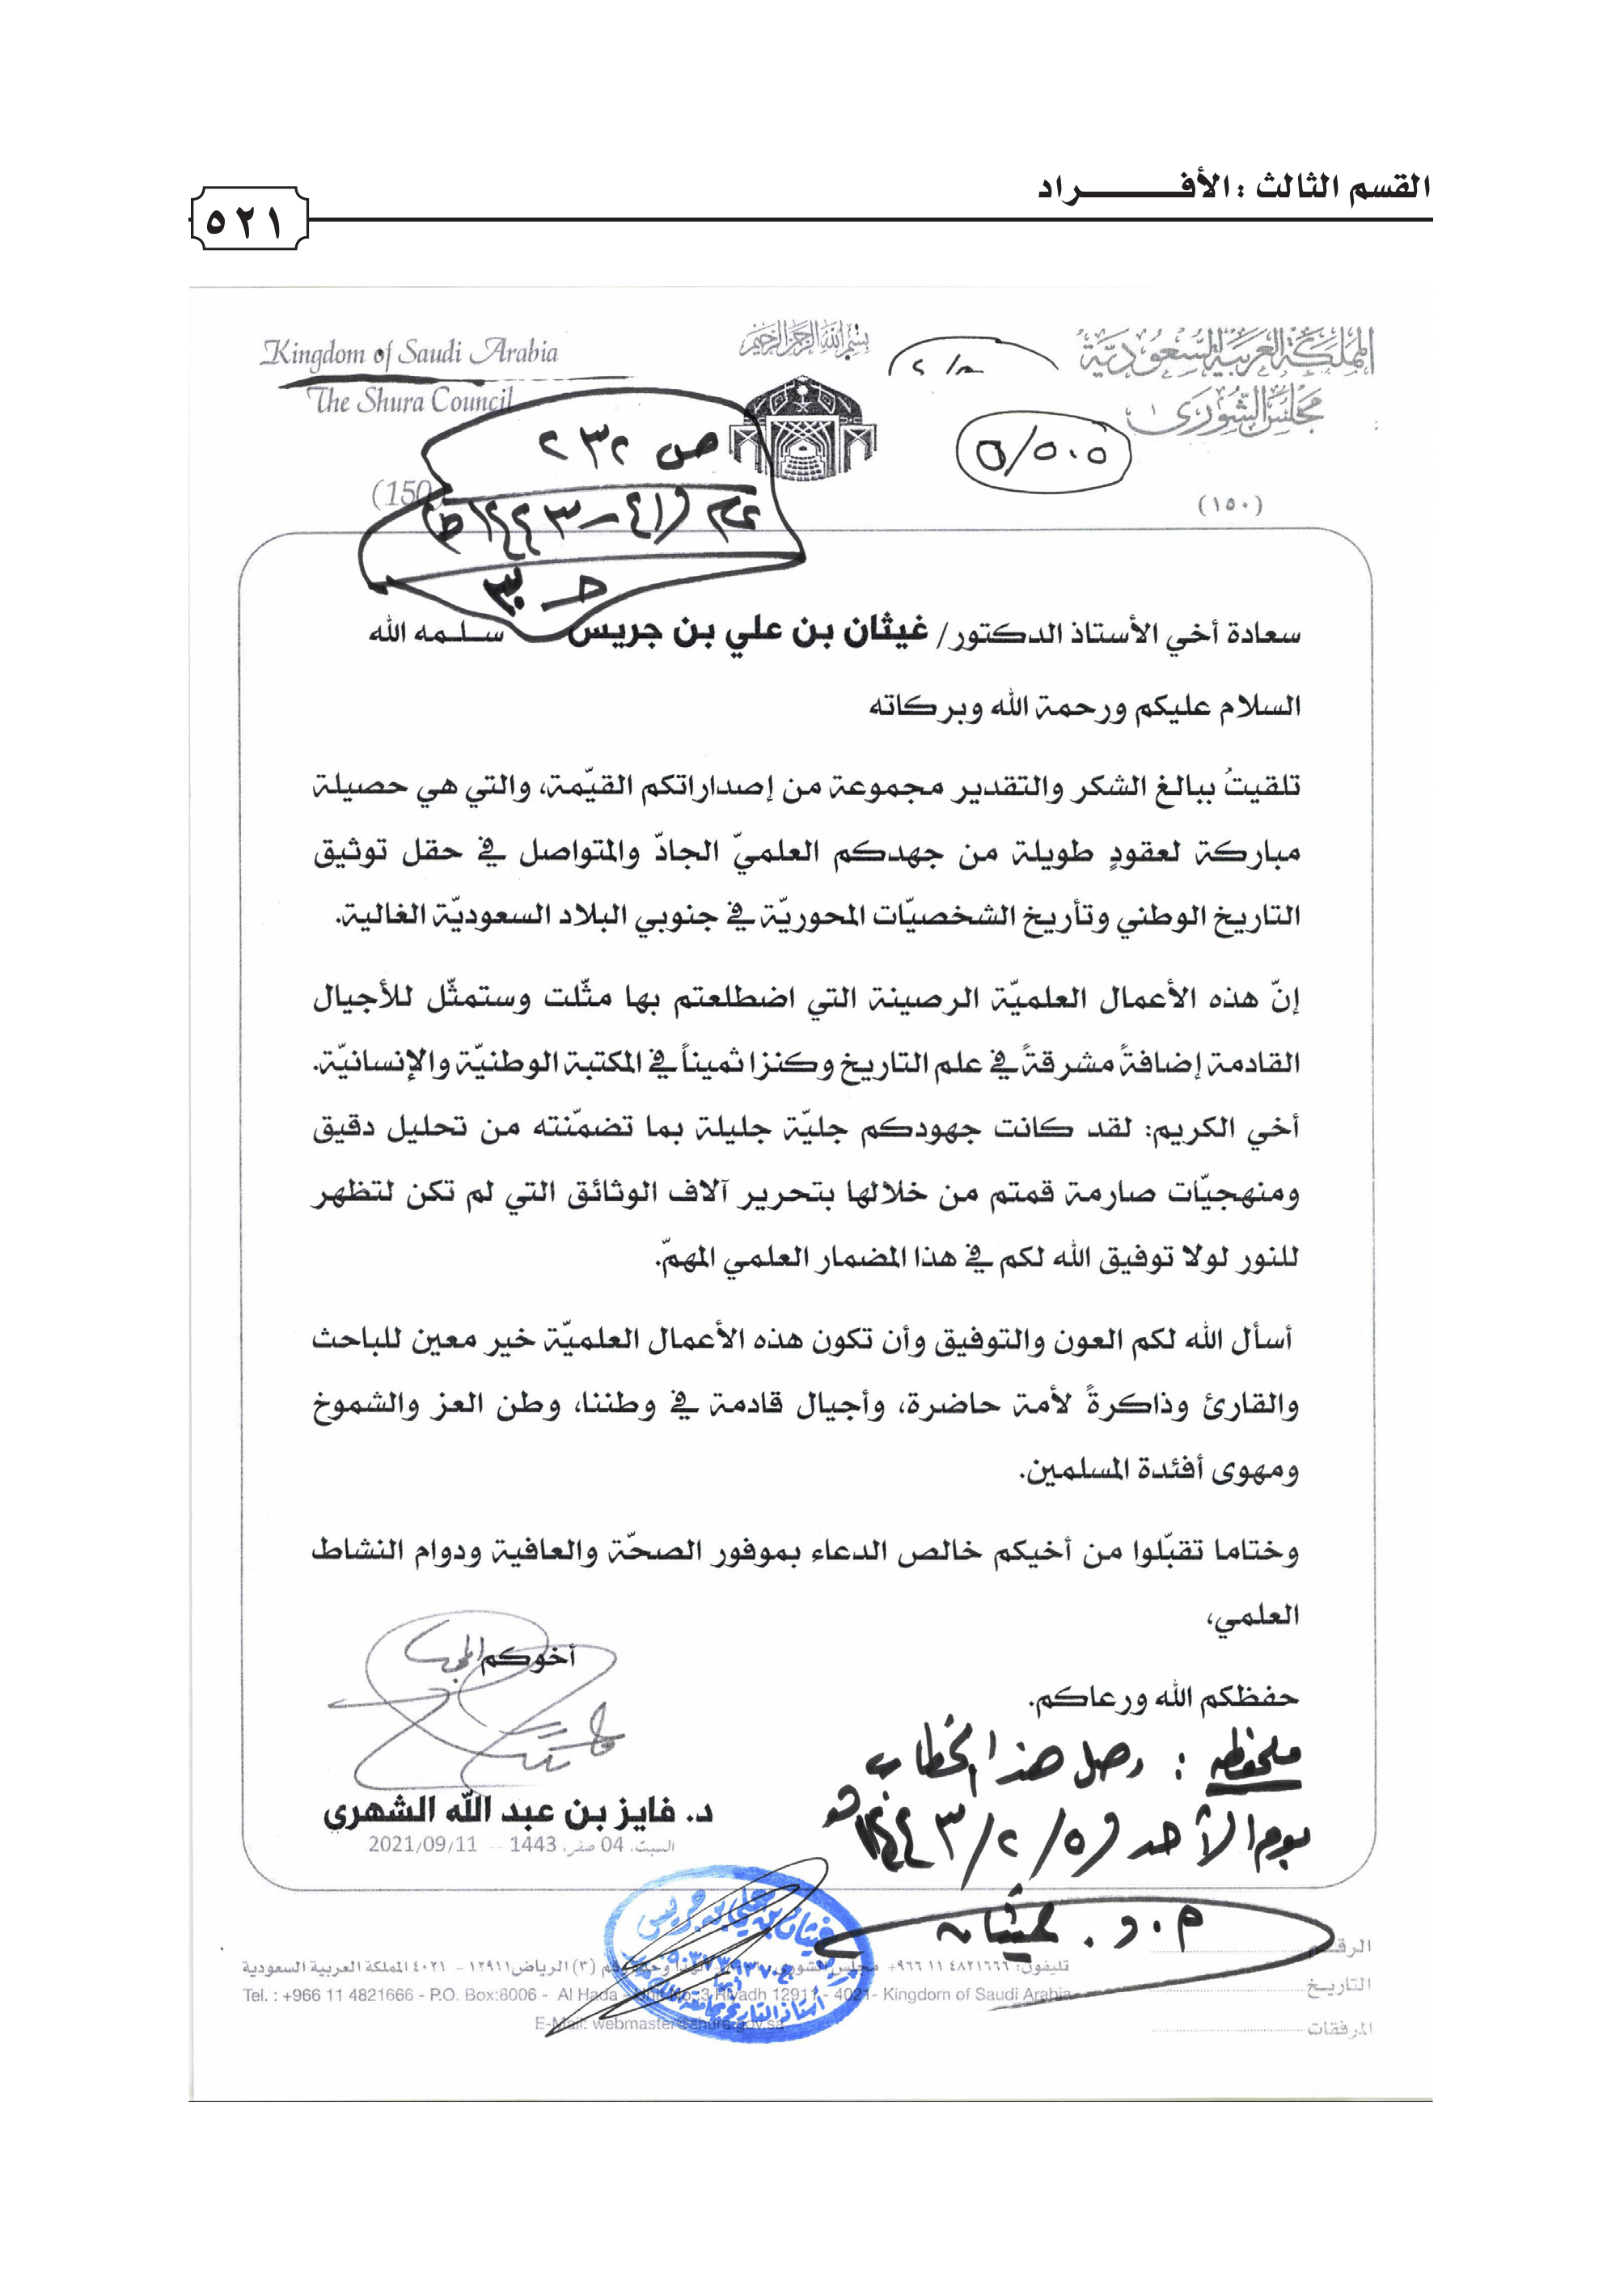 القسم الثالث : الأفـــــــراد
٥٢١
المملكة العربية السعودية
مجلس الشورى
بسم الله الرحمن الرحيم
Kingdom of Saudi Arabia
The Shura Council
٢/٨
٥/٥٠٥
ص ٢٣٢
(١٥٠)
(150
سعادة أخي الأستاذ الدكتور/ غيثان بن علي بن جريس سـلـمه الله
السلام عليكم ورحمة الله وبركاته
تلقيتُ ببالغ الشكر والتقدير مجموعة من إصداراتكم القيّمة، والتي هي حصيلة
مباركة لعقودٍ طويلة من جهدكم العلميّ الجادّ والمتواصل في حقل توثيق
التاريخ الوطني وتأريخ الشخصيّات المحوريّة في جنوبي البلاد السعوديّة الغالية.
إنّ هذه الأعمال العلميّة الرصينة التي اضطلعتم بها مثّلت وستمثّل للأجيال
القادمة إضافةً مشرقةً في علم التاريخ وكنزا ثميناً في المكتبة الوطنيّة والإنسانيّة.
أخي الكريم: لقد كانت جهودكم جليّة جليلة بما تضمّنته من تحليل دقيق
ومنهجيّات صارمة قمتم من خلالها بتحرير آلاف الوثائق التي لم تكن لتظهر
للنور لولا توفيق الله لكم في هذا المضمار العلمي المهمّ.
أسأل الله لكم العون والتوفيق وأن تكون هذه الأعمال العلميّة خير معين للباحث
والقارئ وذاكرةً لأمة حاضرة، وأجيال قادمة في وطننا، وطن العز والشموخ
ومهوى أفئدة المسلمين.
وختاما تقبّلوا من أخيكم خالص الدعاء بموفور الصحّة والعافية ودوام النشاط
العلمي،
أخوكم
حفظكم الله ورعاكم.
ملحوظه : وصل هذا الخطاب
يوم الأحد ٥/٢/١٤٤٣هـ
د. فايز بن عبد الله الشهري
السبت، 04 صفر، 1443 -- 2021/09/11
أ.د. غيثان
غيثان بن علي بن جريس
أستاذ التاريخ بجامعة الملك خالد
الرقم
التاريخ
المرفقات
تليفون: ٤٨٢١٦٦٦ ١١ ٩٦٦+ مجلس الشورى (٣) الرياض ١٢٩١١ - ٤٠٢١ المملكة العربية السعودية
Tel. : +966 11 4821666 - P.O. Box:8006 - Al Hada - Unit No.:3 Riyadh 12911 - 4021- Kingdom of Saudi Arabia
E-Mail: webmaster@shura.gov.sa